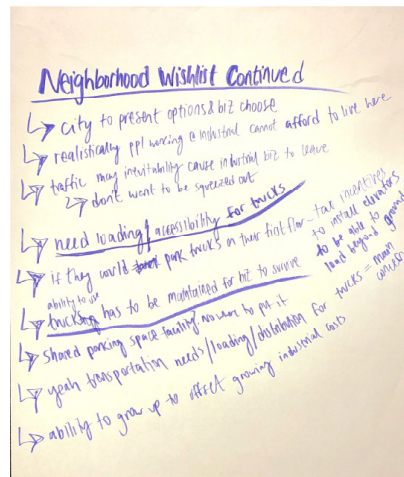 Neighborhood Wishlist Continued
city to present options & biz choose
realistically ppl working @ industrial cannot afford to live here
traffic may inevitability cause industrial biz to leave
don't want to be squeezed out
need loading/accessibility for trucks
if they could park trucks on their first floor – tax incentives
to install elevators
to be able to
load beyond ground
ability to use
trucks has to be maintained for biz to survive
shared parking space facility, no where to put it
yeah transportation needs/loading/distribution for trucks = main
concern
ability to grow up to offset growing industrial costs